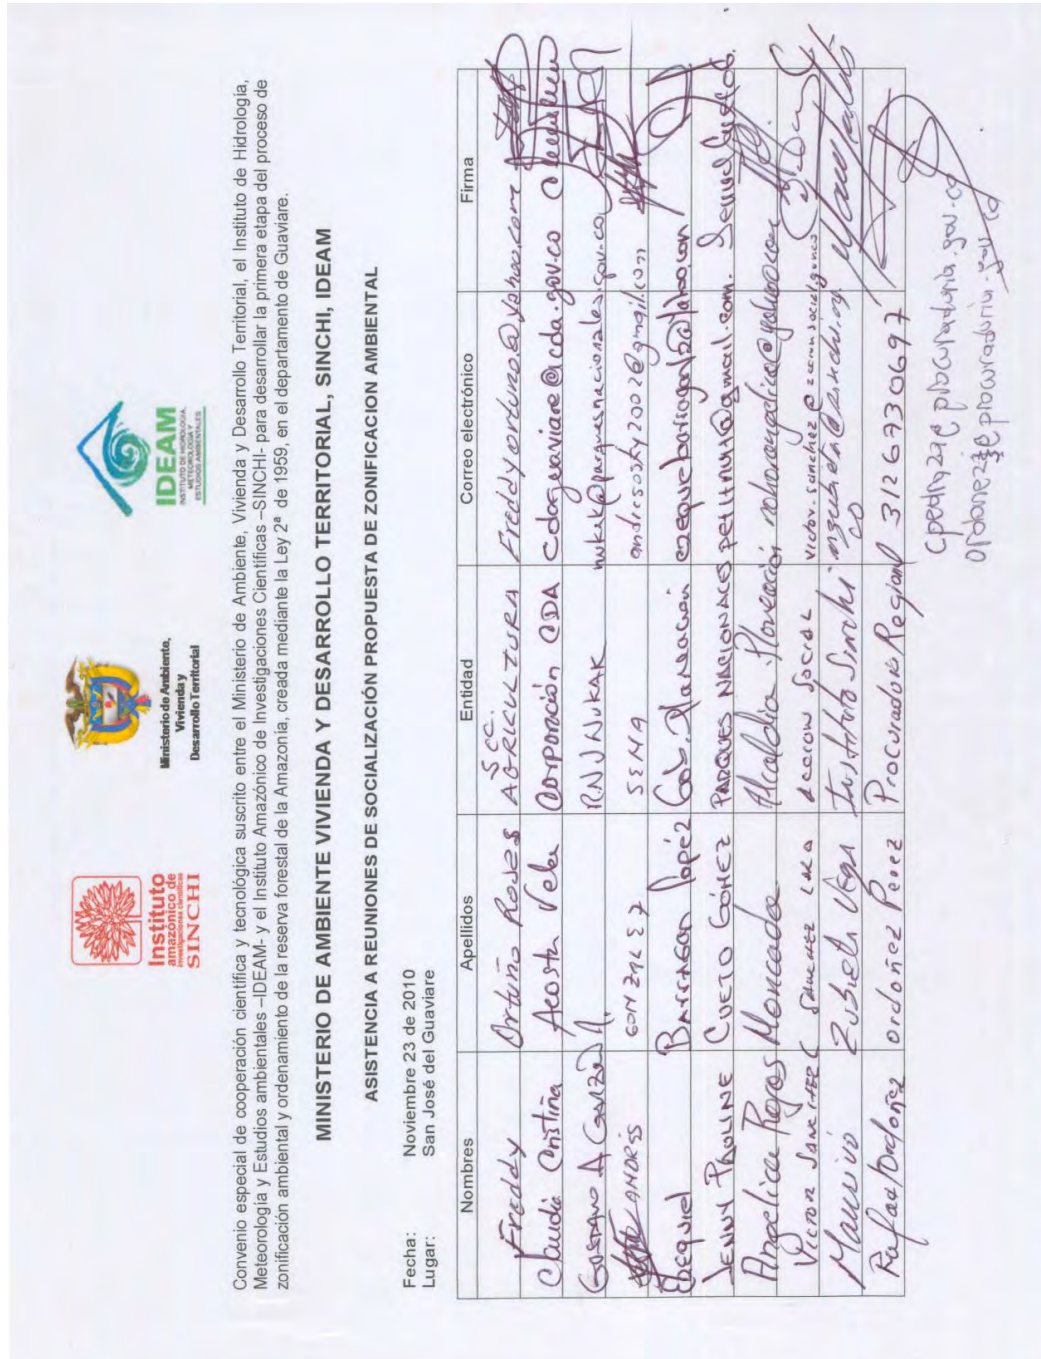 Instituto
amazónico de
investigaciones científicas
SINCHI
Ministerio de Ambiente,
Vivienda y
Desarrollo Territorial
IDEAM
INSTITUTO DE HIDROLOGÍA,
METEOROLOGÍA Y
ESTUDIOS AMBIENTALES
Convenio especial de cooperación científica y tecnológica suscrito entre el Ministerio de Ambiente, Vivienda y Desarrollo Territorial, el Instituto de Hidrología,
Meteorología y Estudios ambientales –IDEAM- y el Instituto Amazónico de Investigaciones Científicas –SINCHI- para desarrollar la primera etapa del proceso de
zonificación ambiental y ordenamiento de la reserva forestal de la Amazonía, creada mediante la Ley 2ª de 1959, en el departamento de Guaviare.
MINISTERIO DE AMBIENTE VIVIENDA Y DESARROLLO TERRITORIAL, SINCHI, IDEAM
ASISTENCIA A REUNIONES DE SOCIALIZACIÓN PROPUESTA DE ZONIFICACION AMBIENTAL
Fecha: Noviembre 23 de 2010
Lugar: San José del Guaviare
Nombres Apellidos Entidad Correo electrónico Firma
Freddy Ortuño Rojas AGRICULTURA
Claudia Cristina Acosta Vela Corporación CDA cdaguaviare@cda.gov.co
Gustavo A Garzon RNN NUKAK nukak@parquesnacionales.gov.co
ANDRES GONZALEZ SENA andresosky2002@gmail.com
Ezequiel Barragan López Gob. Planeación
JENNY PAOLINE CUETO GÓMEZ PARQUES NACIONALES
Angelica Rojas Moncada Alcaldia - Planeación
Victor Sanchez Sanchez Lara Accion Social
Mauricio Zubieta Vega Instituto Sinchi
Rafael Ordoñez Ordoñez Perez Procuraduria Regional 3126730697